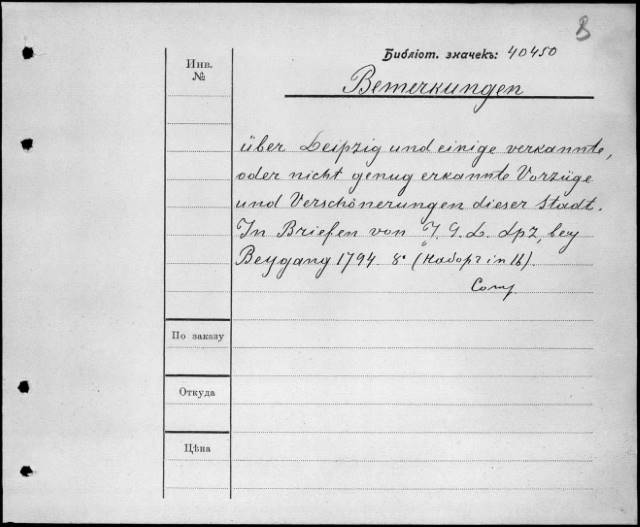 8
Библіот. значекъ: 40450
Инв.
№
Bemerkungen
über Leipzig und einige verkannte,
oder nicht genug erkannte Vorzüge
und Verschönerungen dieser Stadt.
In Briefen von J. G. L. Lpz, bey
Beygang 1794. 8° (Наборъ in 16).
По заказу
Откуда
Цѣна